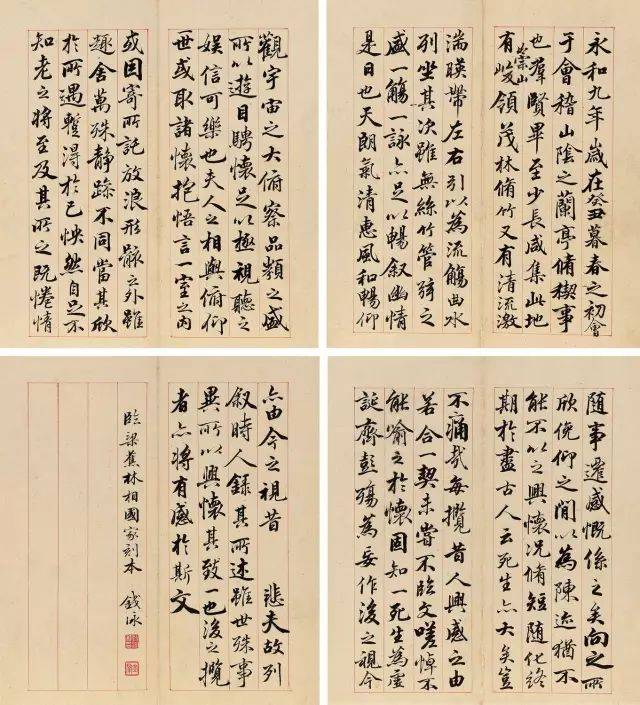 永和九年歲在癸丑暮春之初會
于會稽山陰之蘭亭脩稧事
也羣賢畢至少長咸集此地
有崇山峻領茂林脩竹又有清流激
湍暎帶左右引以為流觴曲水
列坐其次雖無絲竹管弦之
盛一觴一詠亦足以暢叙幽情
是日也天朗氣清惠風和暢仰
觀宇宙之大俯察品類之盛
所以遊目騁懷足以極視聽之
娛信可樂也夫人之相與俯仰
一世或取諸懷抱悟言一室之內
或因寄所託放浪形骸之外雖
趣舍萬殊静躁不同當其欣
於所遇暫得於己怏然自足不
知老之將至及其所之既惓情
隨事遷感慨係之矣向之所
欣俛仰之閒以為陳迹猶不
能不以之興懷況脩短隨化終
期於盡古人云死生亦大矣豈
不痛哉每攬昔人興感之由
若合一契未嘗不臨文嗟悼不
能喻之於懷固知一死生為虛
誕齊彭殤為妄作後之視今
亦由今之視昔 悲夫故列
叙時人錄其所述雖世殊事
異所以興懷其致一也後之攬
者亦將有感於斯文
臨梁蕉林相國家刻本 錢泳